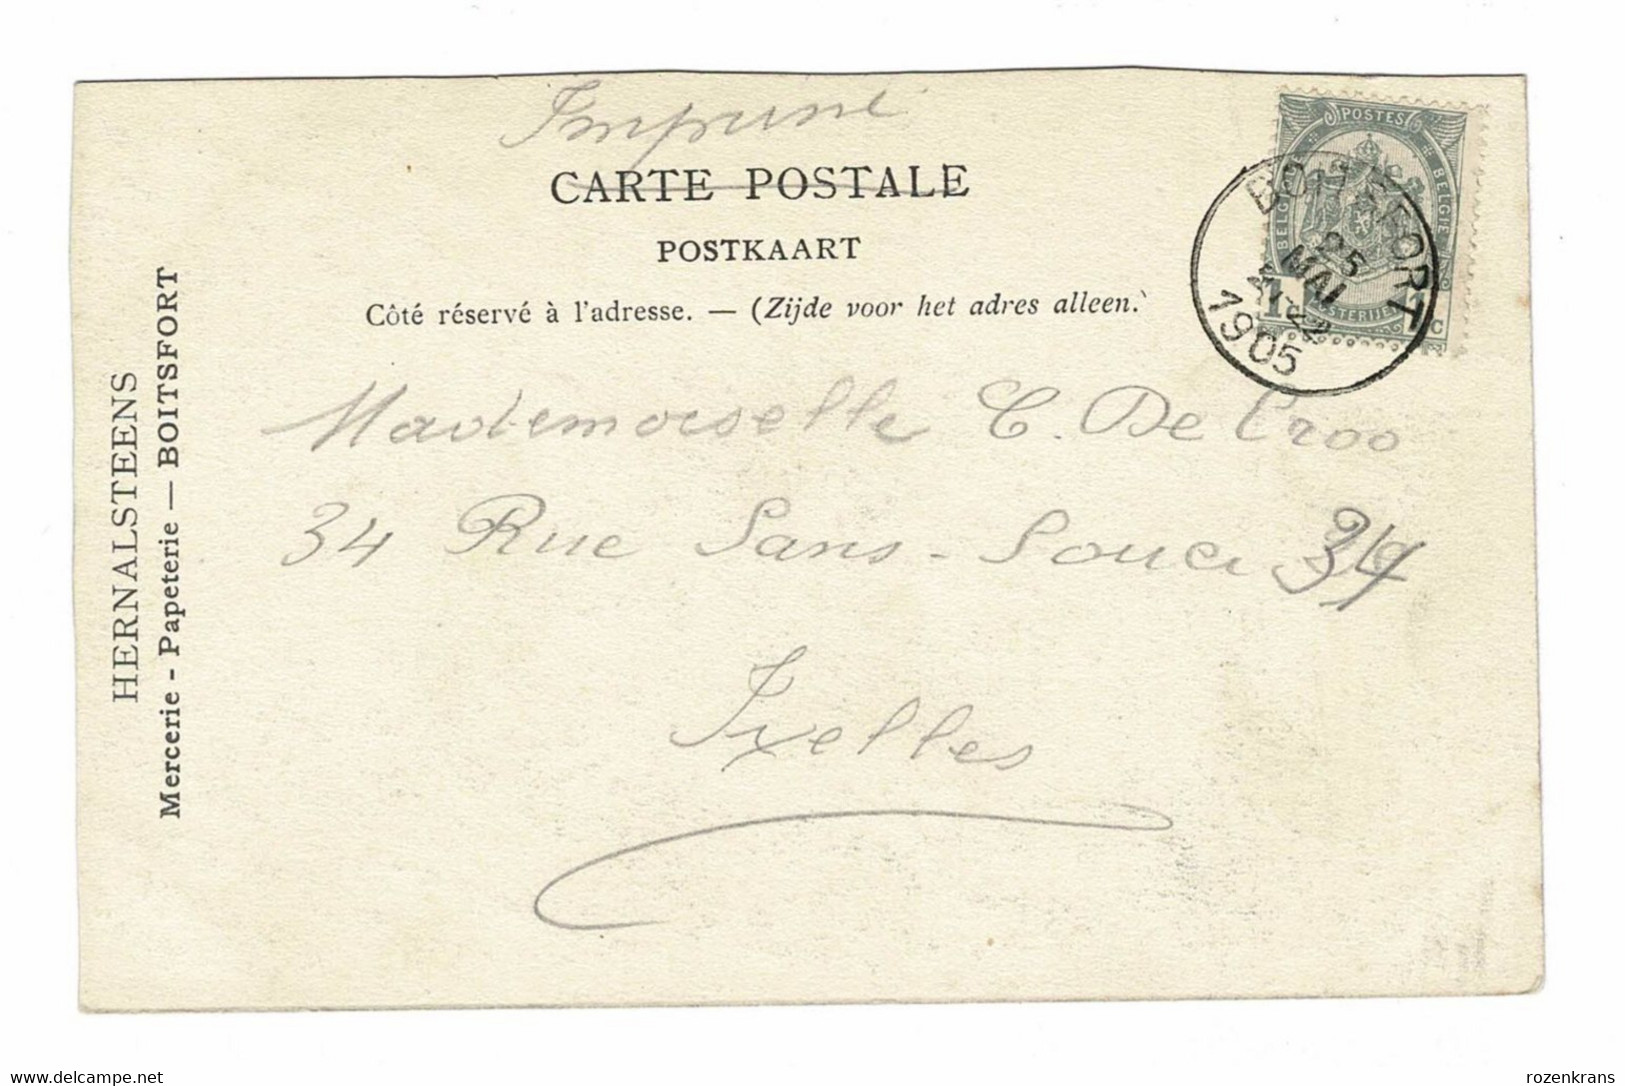 Imprimé
CARTE POSTALE
POSTKAART
Côté réservé à l'adresse. — (Zijde voor het adres alleen.
POSTES
BELGIQUE
BELGIE
1 C
BOITSFORT
25
MAI
1905
Mademoiselle C. De Croo
34 Rue Sans-Souci 34
Ixelles
HERNALSTEENS
Mercerie - Papeterie — BOITSFORT
www.delcampe.net
rozenkrans